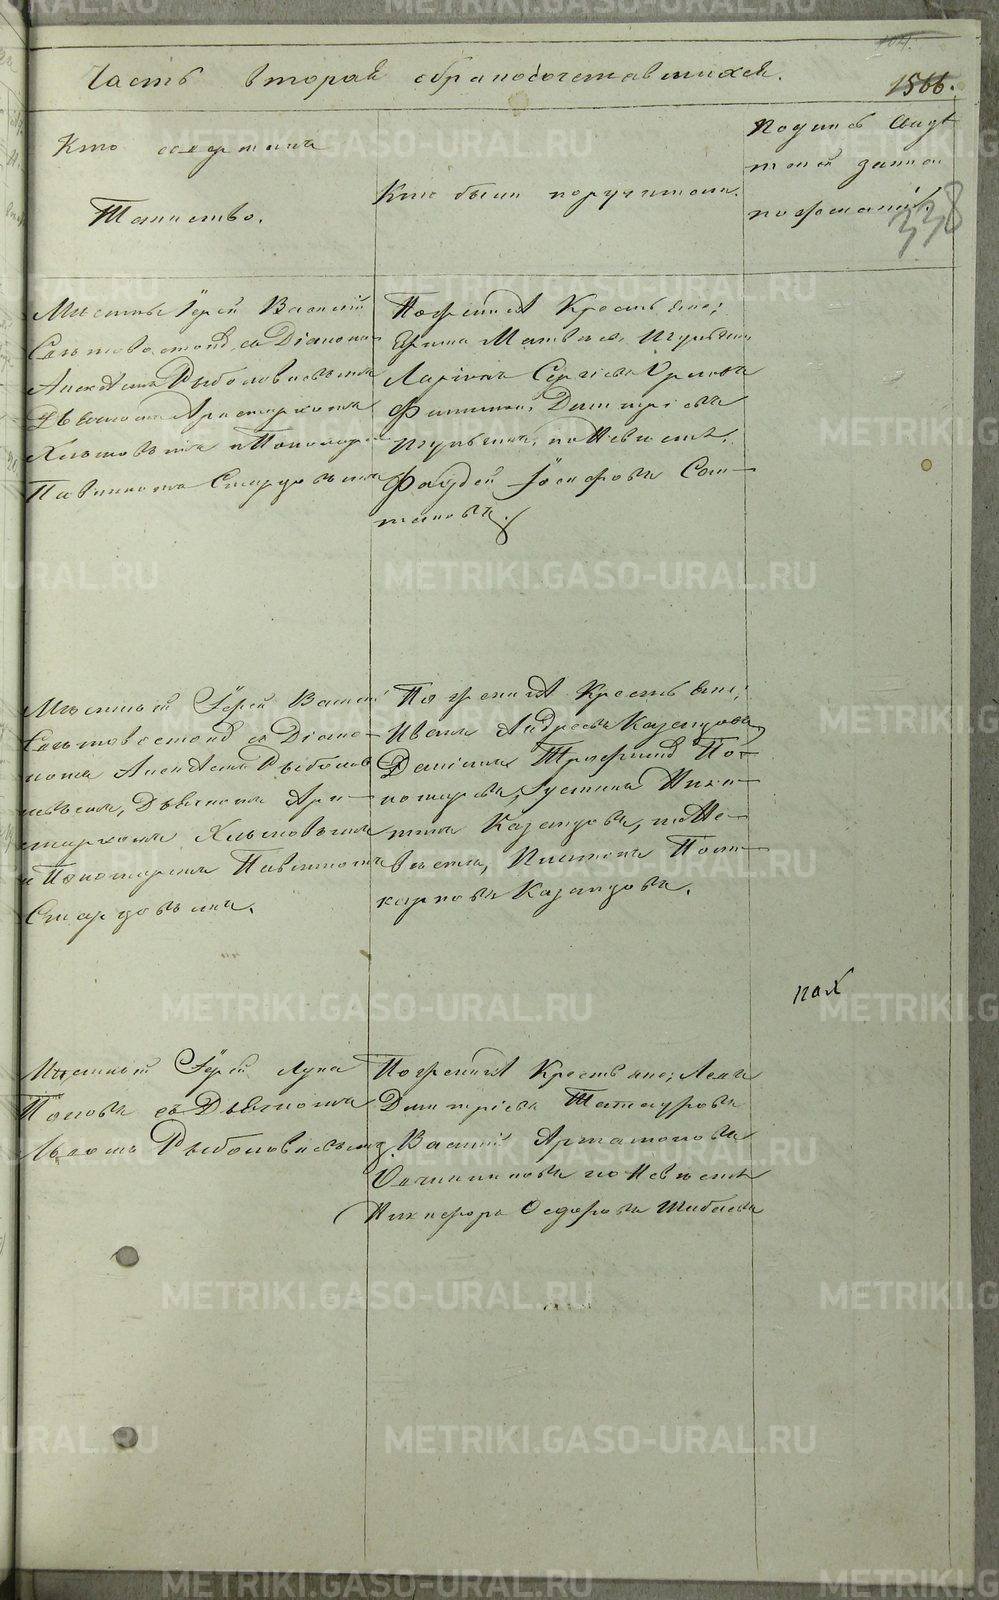 Часть вторая о бракосочетавшихся.
1566.
338
Кто совершалъ
Таинство.
Кто были поручители.
Подпись свидѣ
телей записи
по желанію.
Мѣстный Іерей Василій
Сельтовостокъ съ Діакономъ
Алексѣемъ Рыболовлевымъ
Дьячкомъ Аристархомъ
Хлыновымъ и Пономаремъ
Павлиномъ Стардовымъ
По женихѣ Крестьяне:
Матвѣевъ
Ларіонъ Сергіевъ
Филиппъ Димитріевъ
по Невѣстѣ
Фадей Іосифовъ Сал-
тановъ.
Мѣстный Іерей Василій
съ Діако-
номъ Алексѣемъ Рыболов
левымъ, Дьячкомъ Ари-
стархомъ Хлыновымъ
и Пономаремъ Павлиномъ
Стардовымъ.
По женихѣ Крестьяне:
Иванъ Андреевъ Казанцовъ
Даніилъ Трофимовъ По-
номаревъ, Густинъ Ники-
тинъ Казанцовъ, по Не-
вѣстѣ, Платонъ Поли-
карповъ Казанцовъ.
пол
Мѣстный Іерей Лука
Поповъ съ Дьячкомъ
Львомъ Рыболовлевымъ
По женихѣ Крестьяне;
Димитріевъ Татауровъ
Василій Артамоновъ
Овчинниковъ по Невѣстѣ
Никифоръ Ѳедоровъ Шибаевъ
METRIKI.GASO-URAL.RU